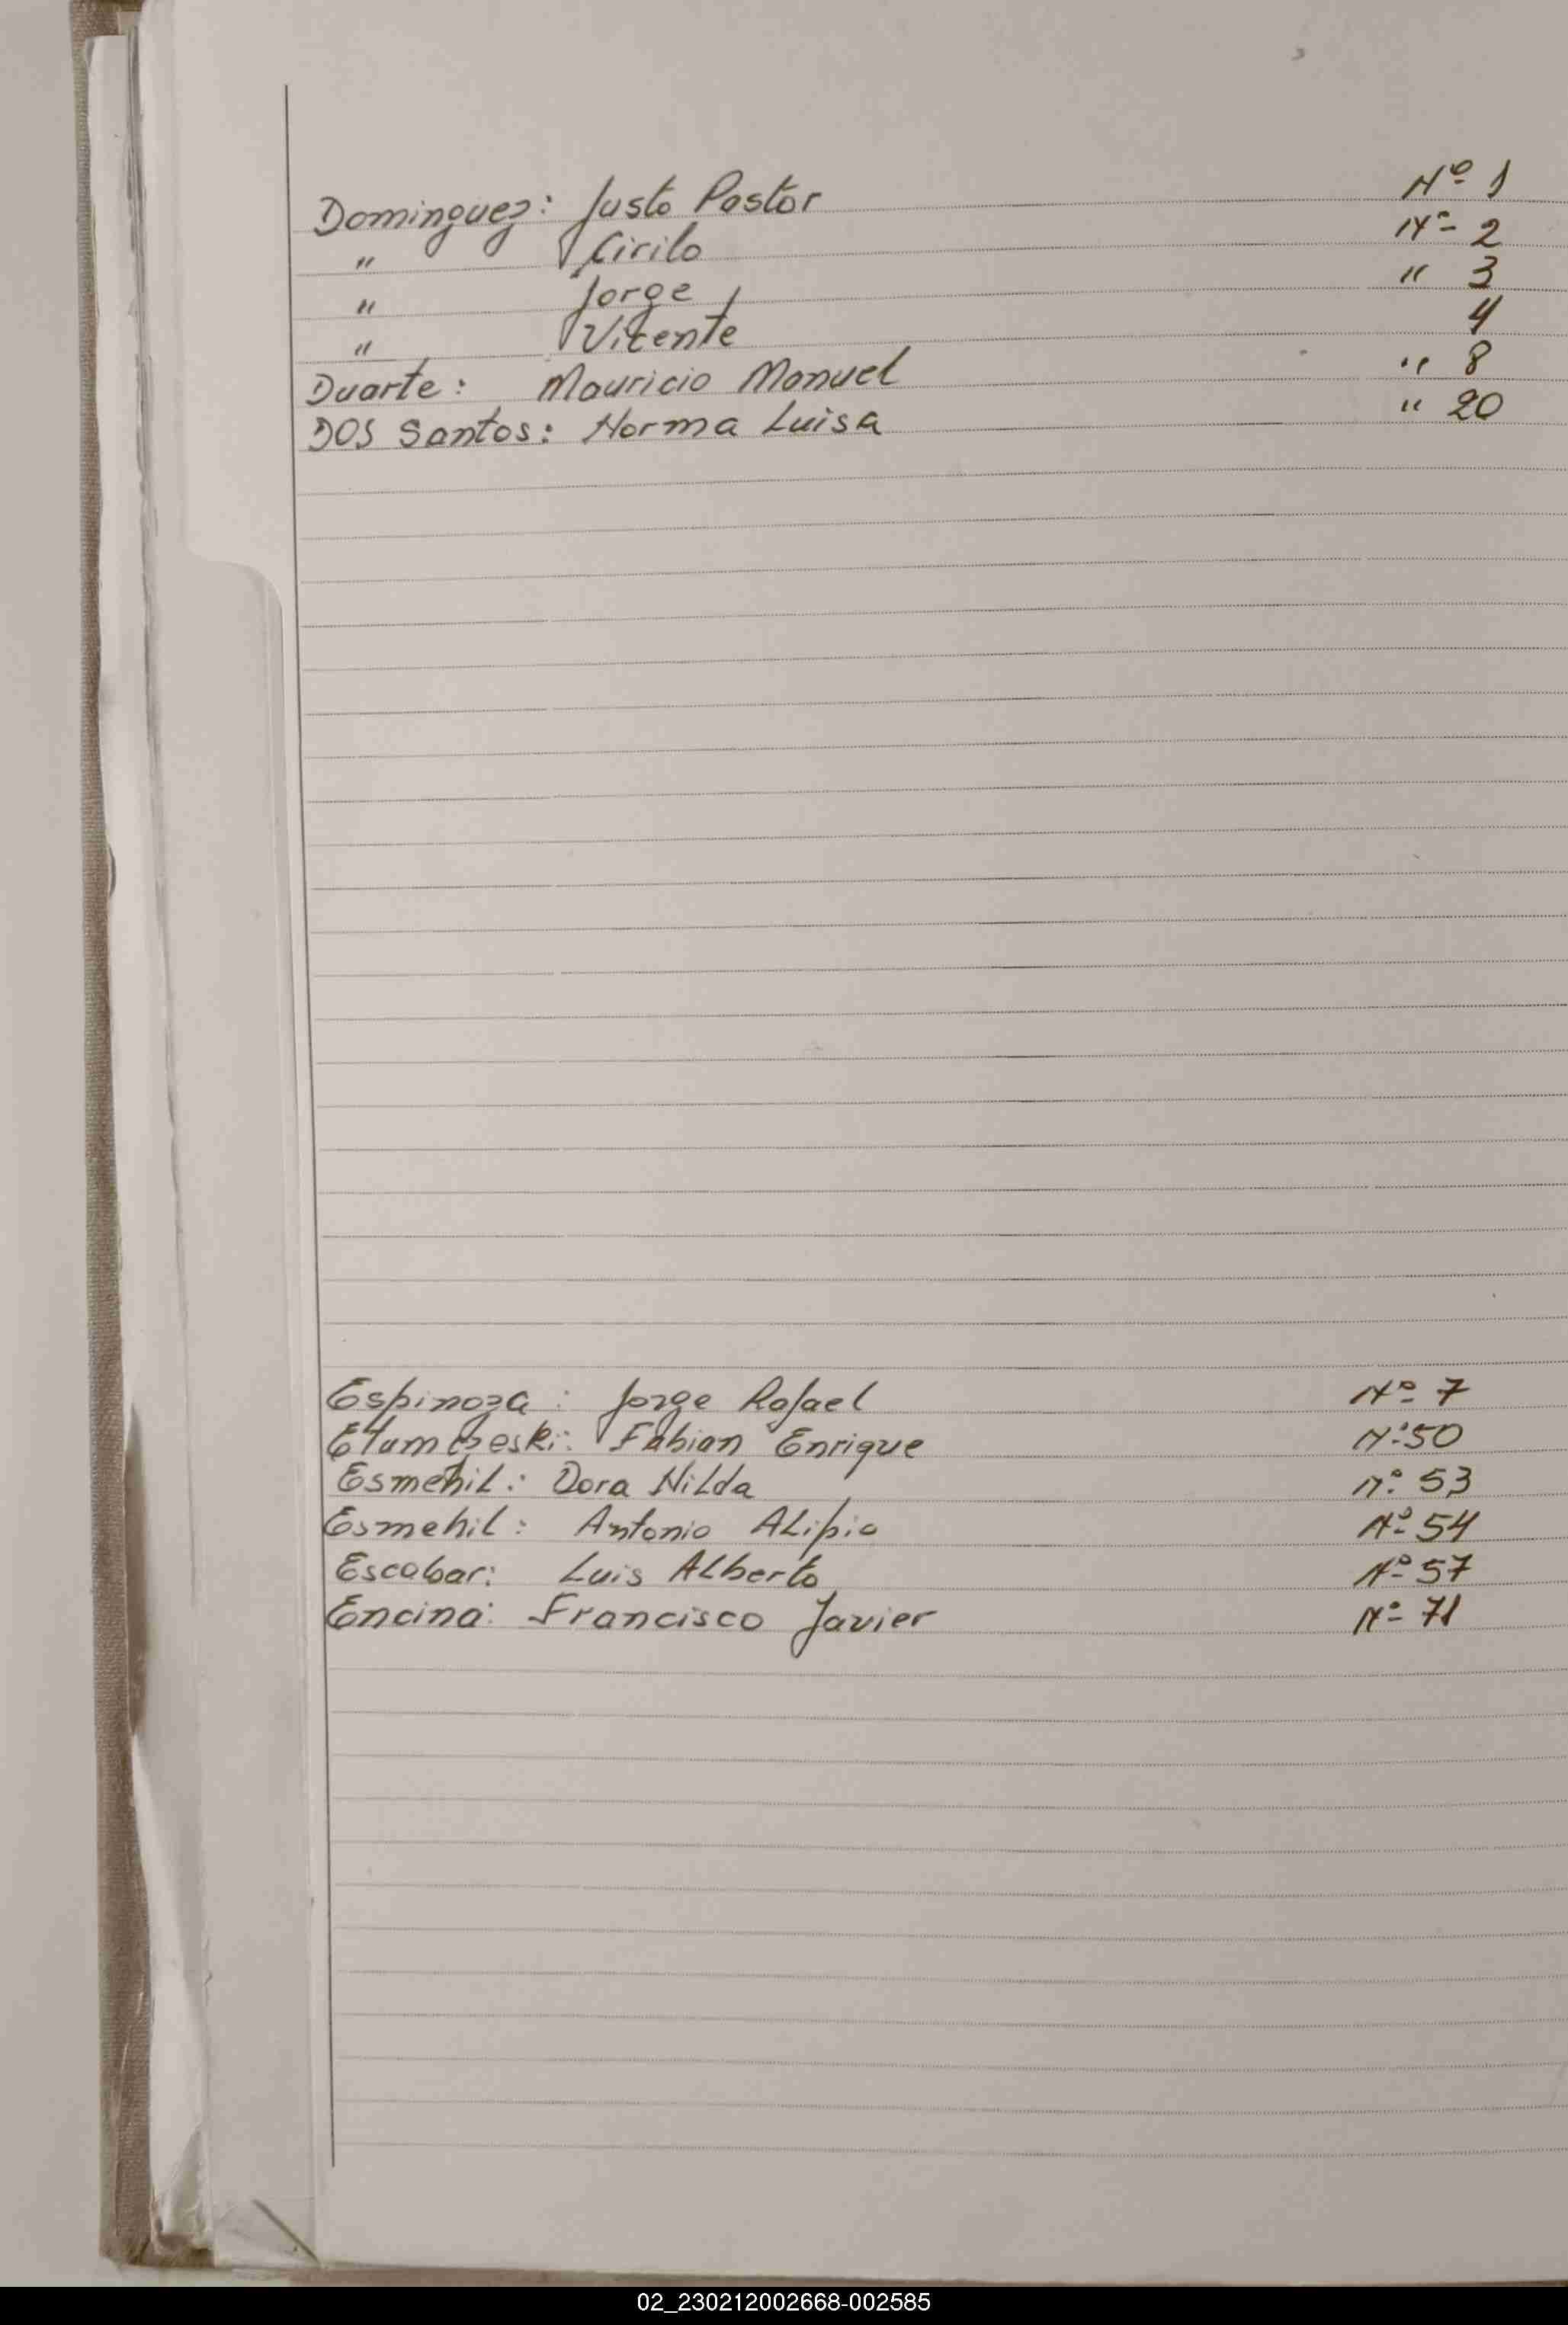 Dominguez: Justo Pastor Nº 1
" Cirilo Nº 2
" Jorge " 3
" Vicente 4
Duarte: Mauricio Manuel " 8
DOS Santos: Norma Luisa " 20
Espinoza: Jorge Rafael Nº 7
Fabian Enrique Nº 50
Esmehil: Dora Nilda Nº 53
Esmehil: Antonio Alipio Nº 54
Escobar: Luis Alberto Nº 57
Encina: Francisco Javier Nº 71
02_230212002668-002585